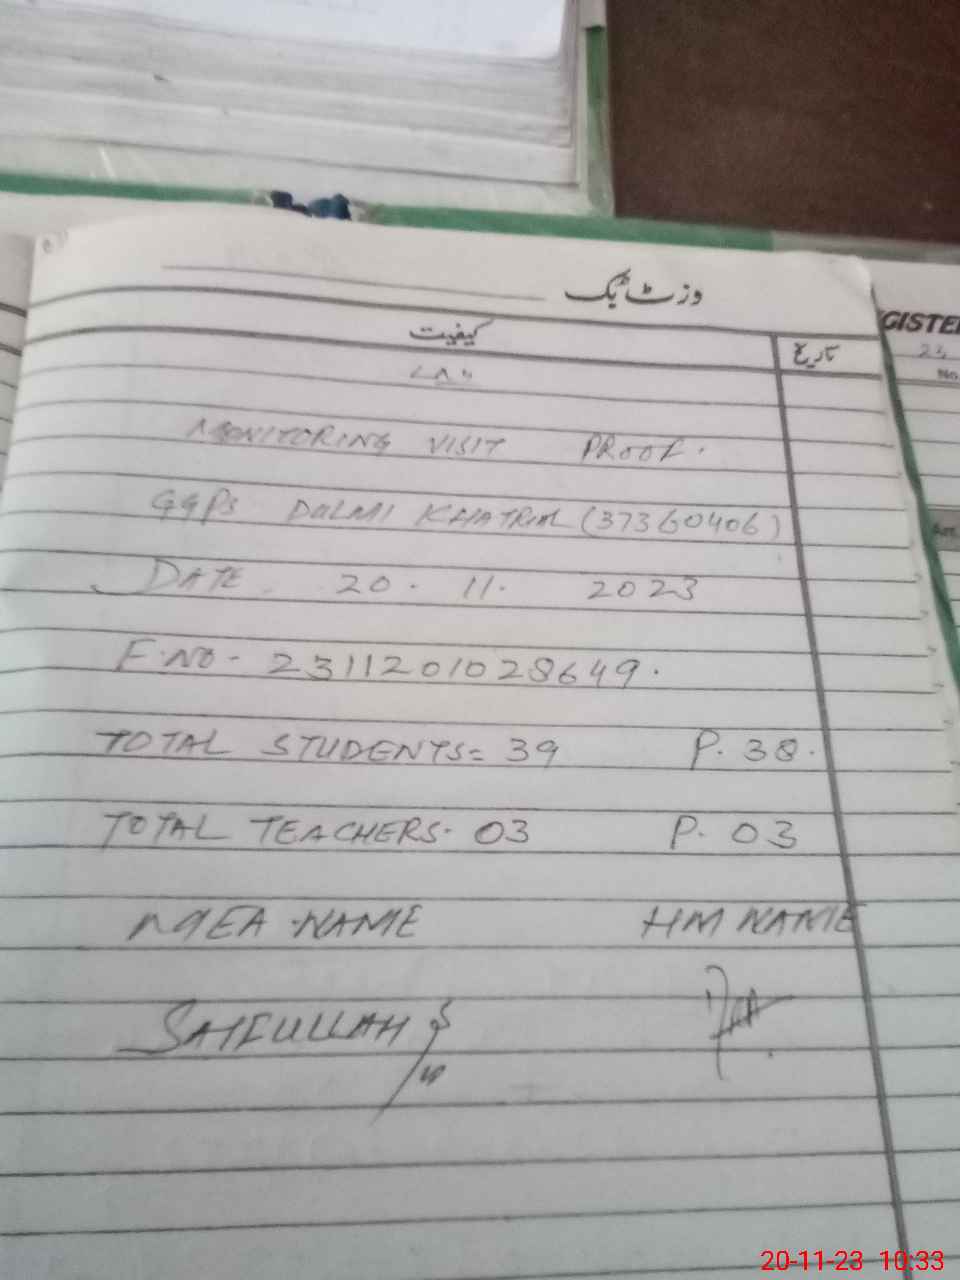 وزٹ بک
GISTE
کیفیت
تاریخ
No
MONITORING VISIT PROOF.
GGPS DULMI KHATRIL (37360406)
DATE. 20. 11. 2023
F.NO- 2311201028649.
TOTAL STUDENTS= 39 P. 38.
TOTAL TEACHERS. 03 P. 03
MEA NAME HM NAME
SAIFULLAH
20-11-23 10:33